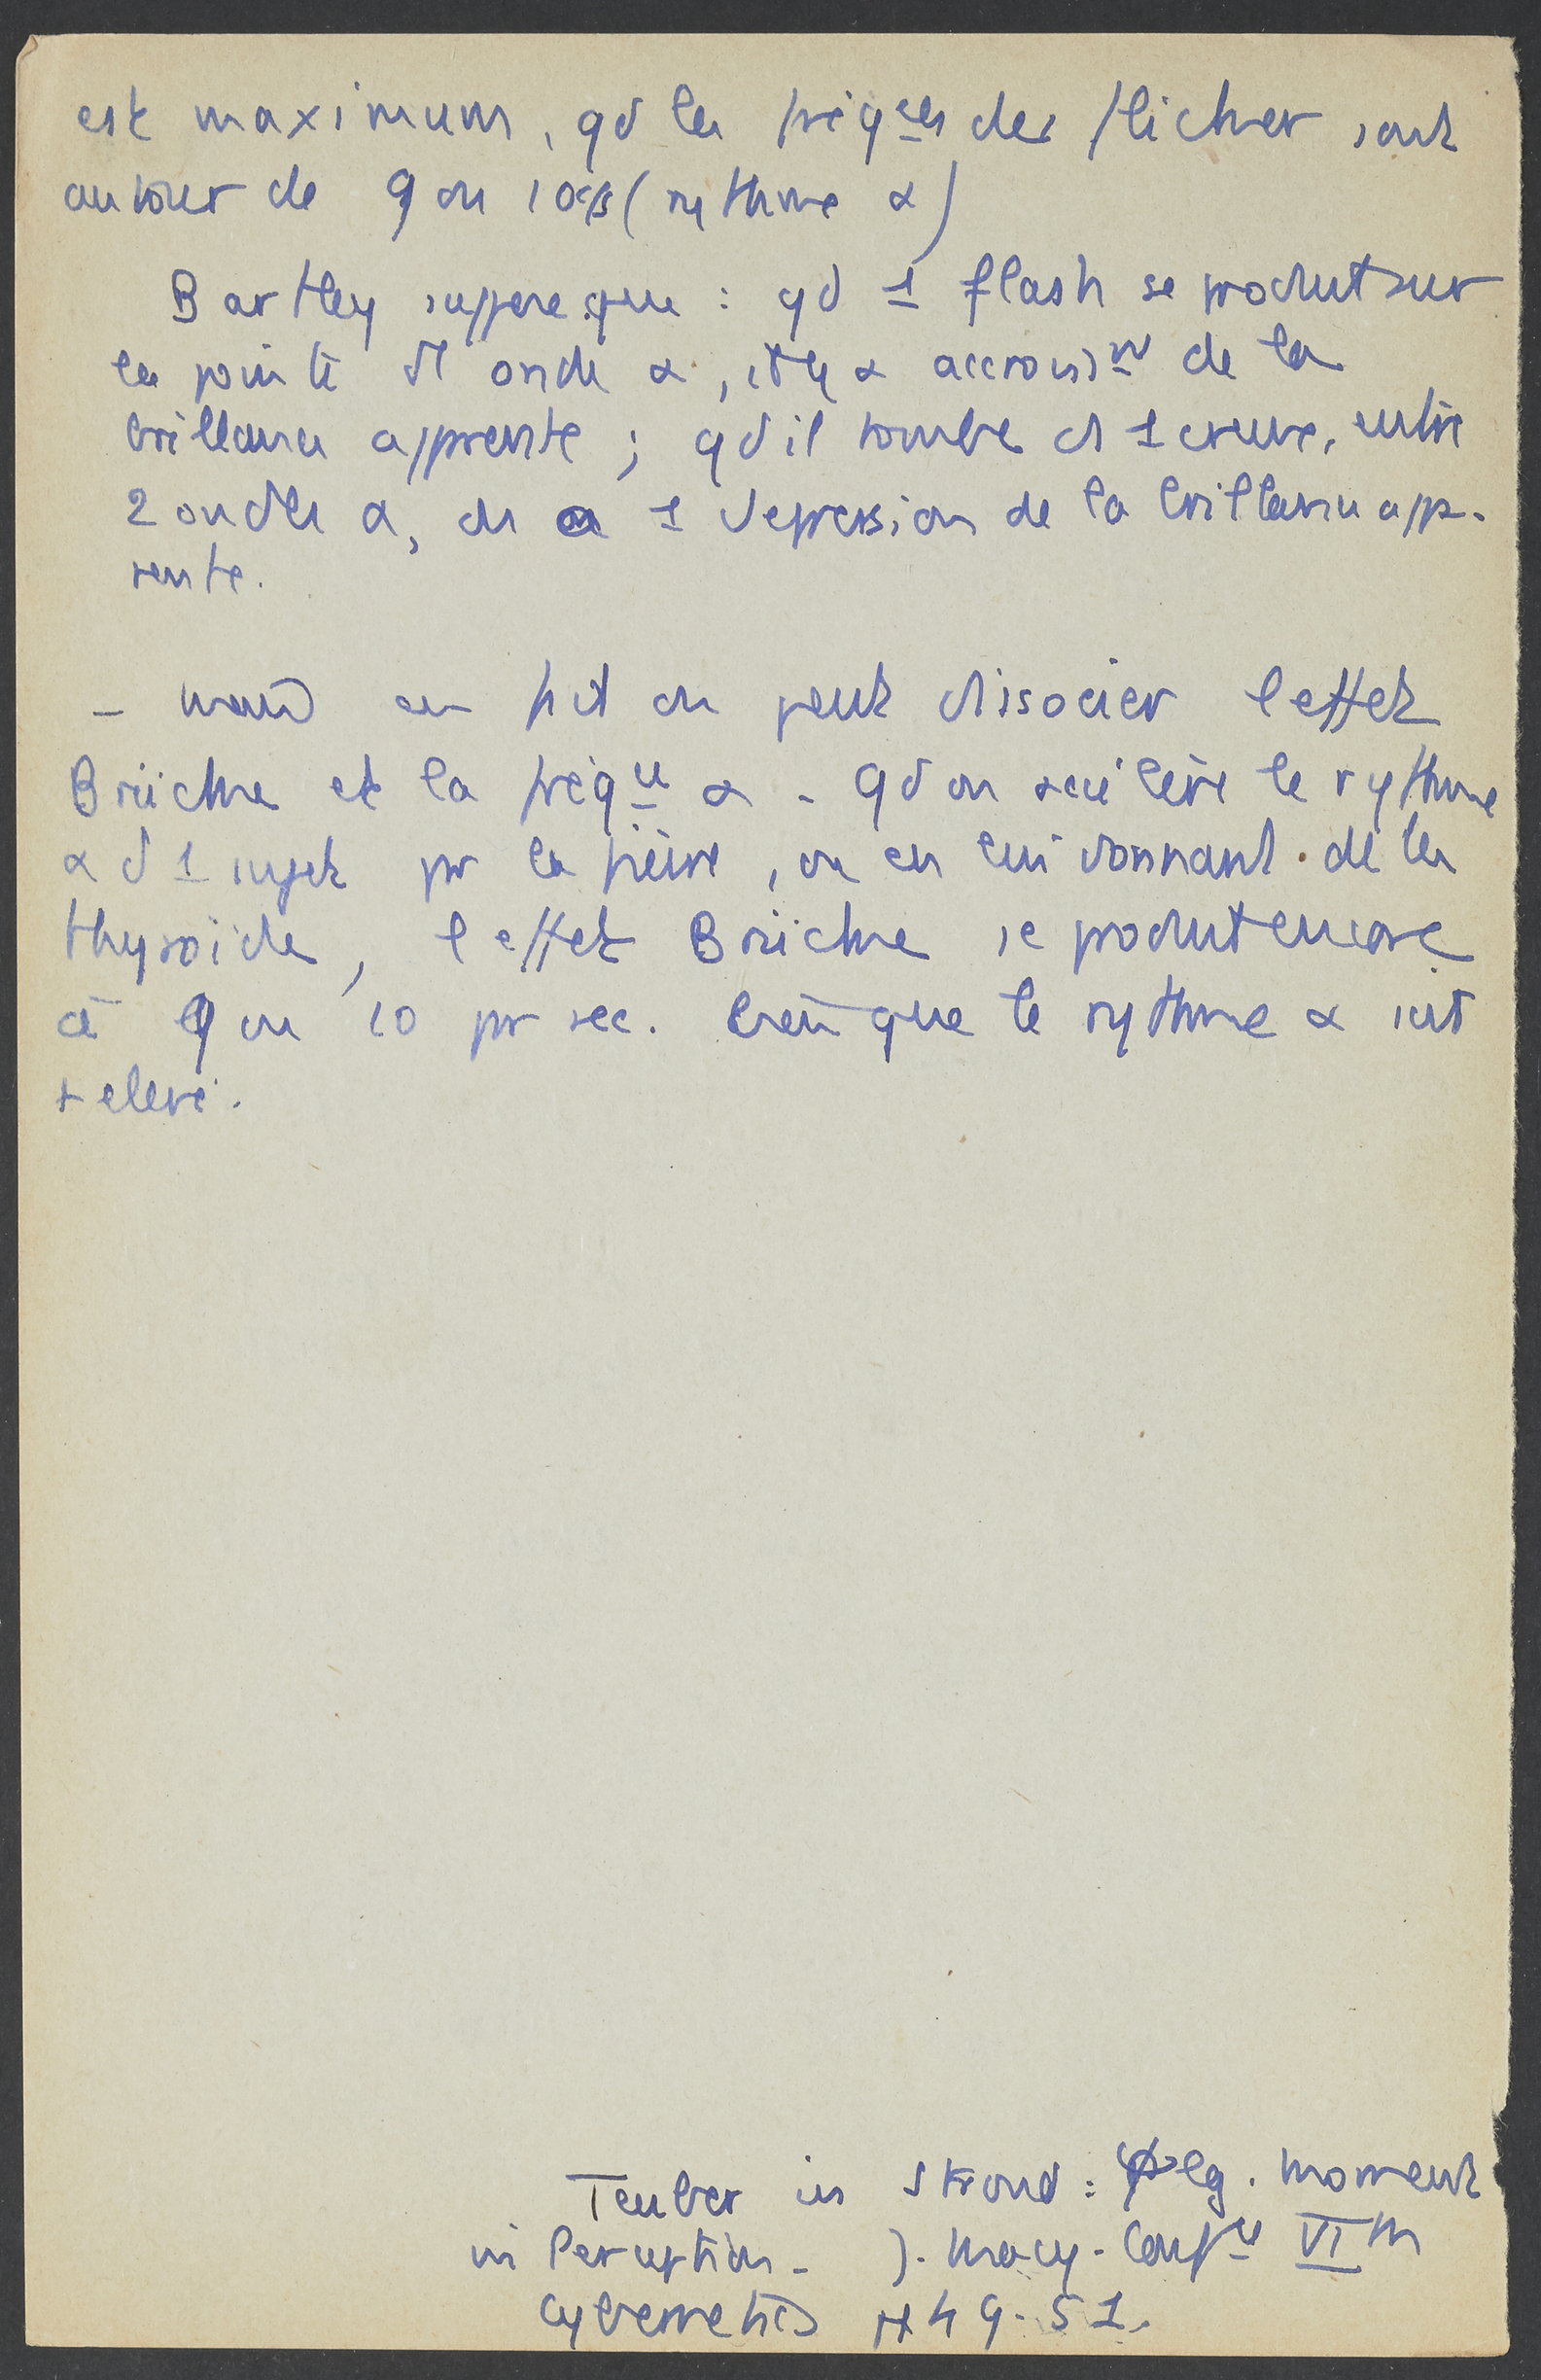 est maximum, qd les fréqces des flicker sont
autour de 9 ou 10 c/s (rythme α)
Bartley suppose que : qd 1 flash se produit sur
la pointe d'1 onde α, il y a accroisst de la
brillance apprente ; qd il tombe ds 1 creux, entre
2 ondes α, on a 1 depression de la brillance app-
rente.
- mais en fait on peut dissocier l'effet
Brücke et la fréqce α - qd on accélère le rythme
α d'1 sujet pr la fièvre, ou en lui donnant de la
thyroïde, l'effet Brücke se produit encore
à 9 ou 10 pr sec. bien que le rythme α soit
+ elevé.
Teuber in Stroud : Psolg. Moment
in Perception - J. Macy - Confce VIth
Cybernetics p 49-51.